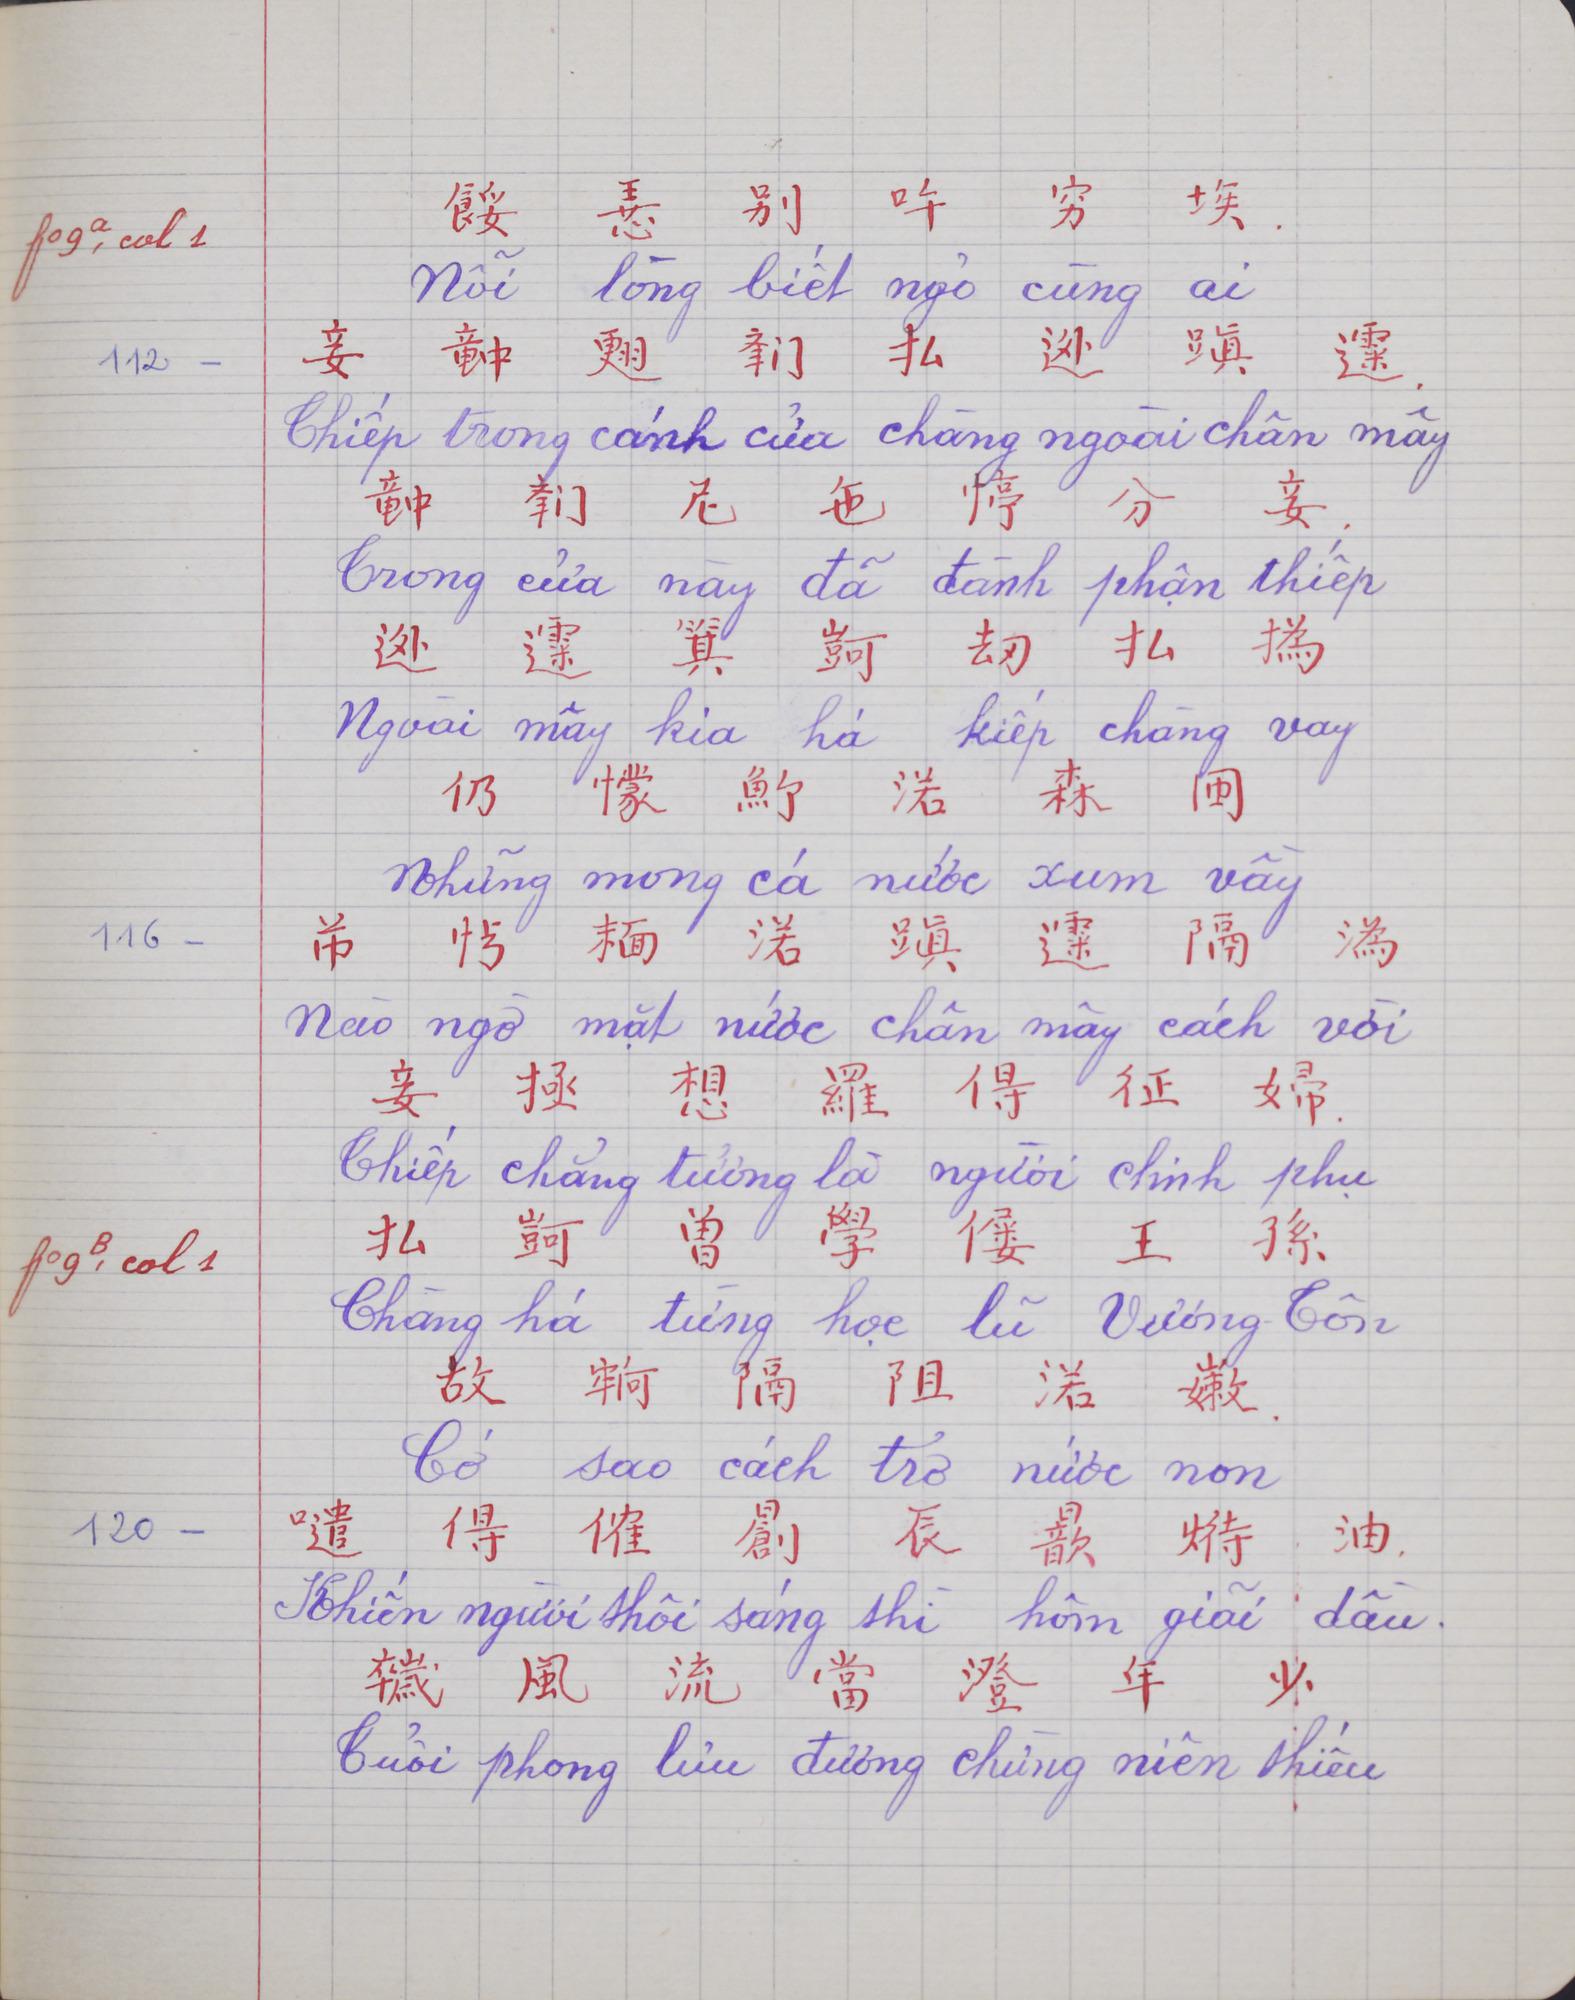 fo9a, col 1
餒 𢚸 别 吘 穷 埃.
Nỗi lòng biết ngỏ cùng ai
112 -
妾 𥪞 𦑃 𨷯 払 𨖲 蹎 𩄲.
Thiếp trong cánh cửa chàng ngoài chân mây
𥪞 𨷯 尼 㐌 停 分 妾.
Trong cửa này đã đành phận thiếp
𩄲 箕 劫 払 撝
Ngoài mây kia há kiếp chàng vay
仍 懞 𩵜 渃 森 囲
Những mong cá nước xum vầy
116 -
𢘾 𩈘 渃 蹎 𩄲 隔 潙
Nào ngờ mặt nước chân mây cách vời
妾 拯 想 羅 得 征 婦.
Thiếp chẳng tưởng là người chinh phụ
fo9B, col 1
払 曽 學 僂 王 孫
Chàng há từng học lũ Vương Tôn
故 隔 阻 渃 嫩.
Cớ sao cách trở nước non
120 -
𠳚 得 催 創 辰 歆 油.
Khiến người thôi sáng thì hôm giãi dầu.
風 流 當 澄 年 少
Tuổi phong lưu đương chừng niên thiếu